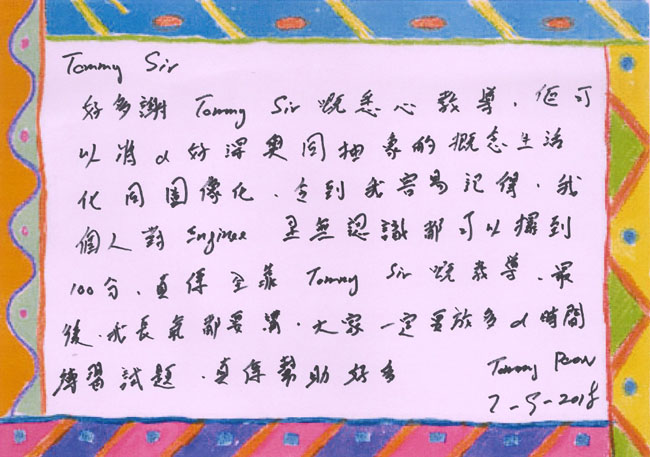 Tommy Sir
好多謝 Tommy Sir 嘅悉心教導,佢可
以將d好深奧同抽象的概念生活
化同圖像化,令到我容易記得,我
個人對 Enginee 全無認識都可以攞到
100分,真係全靠 Tommy Sir 嘅教導,最
後,我長氣都要講,大家一定要放多d時間
練習試題,真係幫助好多
Tommy